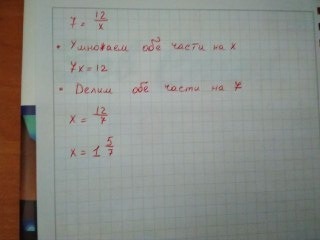 7 = 12/x
• Умножаем обе части на x
7x = 12
• Делим обе части на 7
x = 12/7
x = 1 5/7